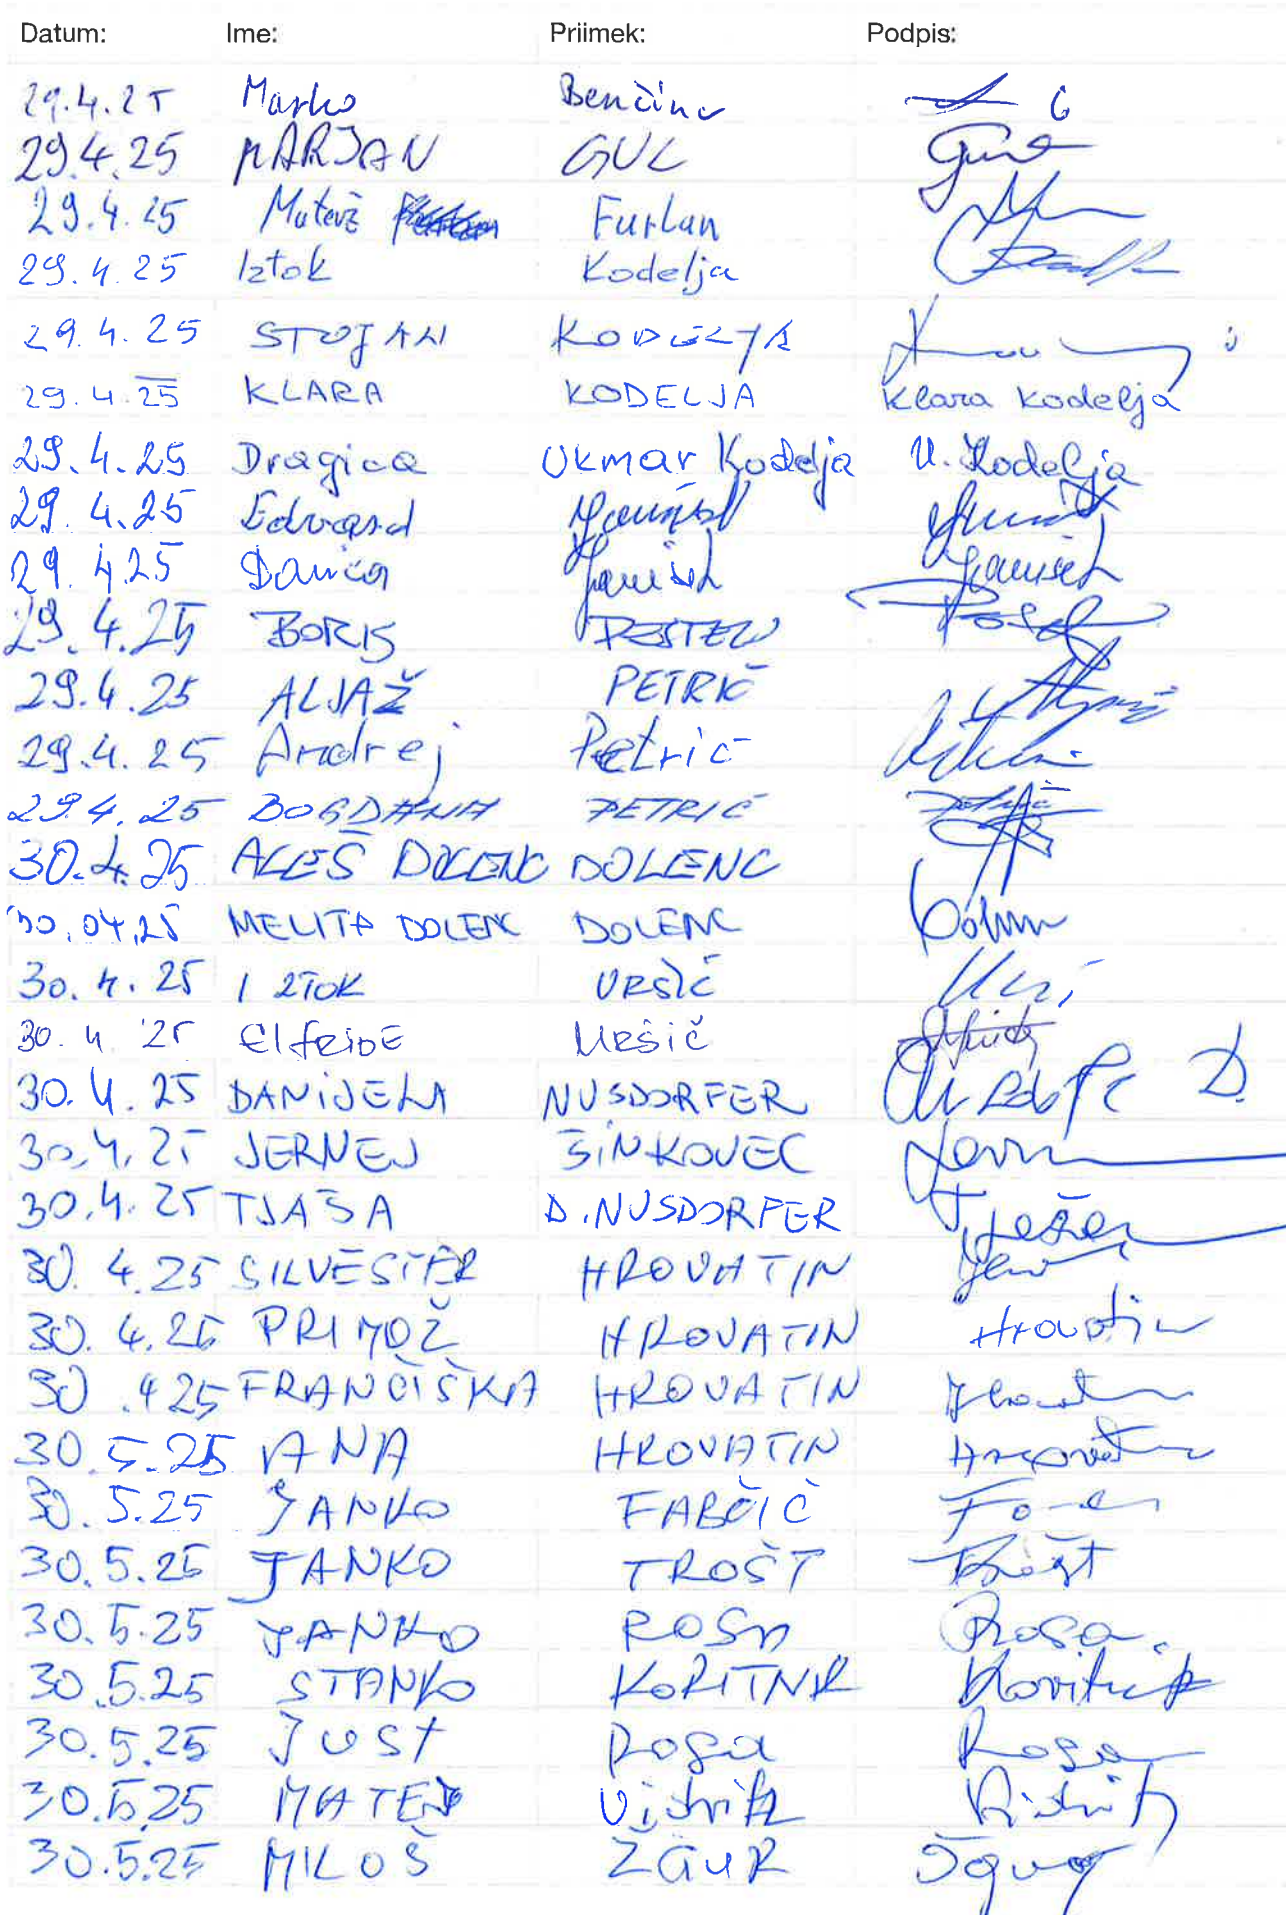 Datum: Ime: Priimek: Podpis:
29.4.25 Marko Benčina
29.4.25 MARJAN GUL
29.4.25 Matevž Furlan
29.4.25 Iztok Kodelja
29.4.25 STOJAN KODELJA
29.4.25 KLARA KODELJA Klara Kodelja
29.4.25 Dragica Ukmar Kodelja U. Kodelja
29.4.25 Edvard
29.4.25 Danica
29.4.25 BORIS
29.4.25 ALJAŽ PETRIČ
29.4.25 Andrej Petrič
29.4.25 BOGDANA PETRIČ
30.4.25 ALEŠ DOLENC DOLENC
30.04.25 MELITA DOLENC DOLENC
30.4.25 IZTOK URŠIČ
30.4.25 Elfride Uršič
30.4.25 DANIJELA NUSDORFER
30.4.25 JERNEJ ŠINKOVEC
30.4.25 TJAŠA D.NUSDORFER
30.4.25 SILVESTER HROVATIN
30.4.25 PRIMOŽ HROVATIN Hrovatin
30.4.25 FRANČIŠKA HROVATIN
30.5.25 ANA HROVATIN
30.5.25 JANKO FABČIČ
30.5.25 JANKO TROŠT Trošt
30.5.25 JANKO ROSA Rosa
30.5.25 STANKO KORITNIK Koritnik
30.5.25 JUST Rosa Rosa
30.5.25 MATEJ Vidrih Vidrih
30.5.25 MILOŠ ŽGUR